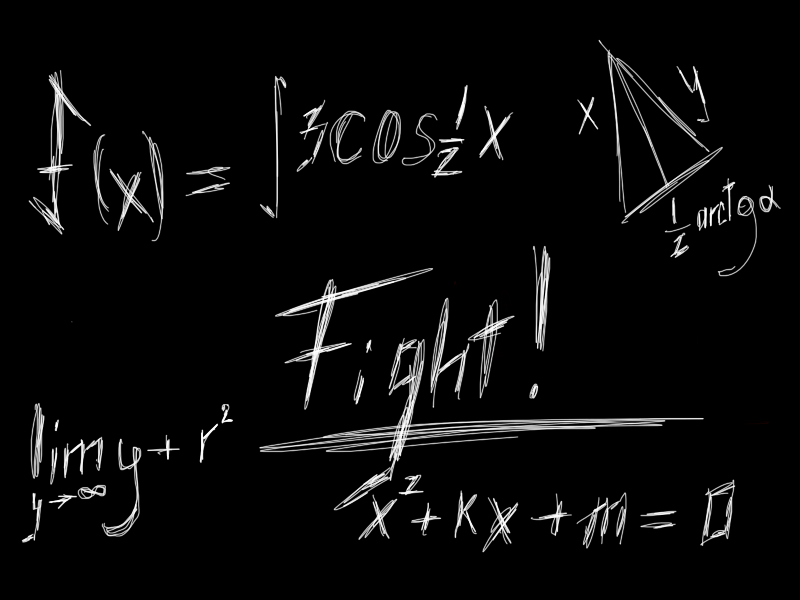 f(x) = ∫ 3cos 1/2 x
x
y
1/2 arctg α
Fight!
lim y + r²
y→∞
x² + kx + m = 0